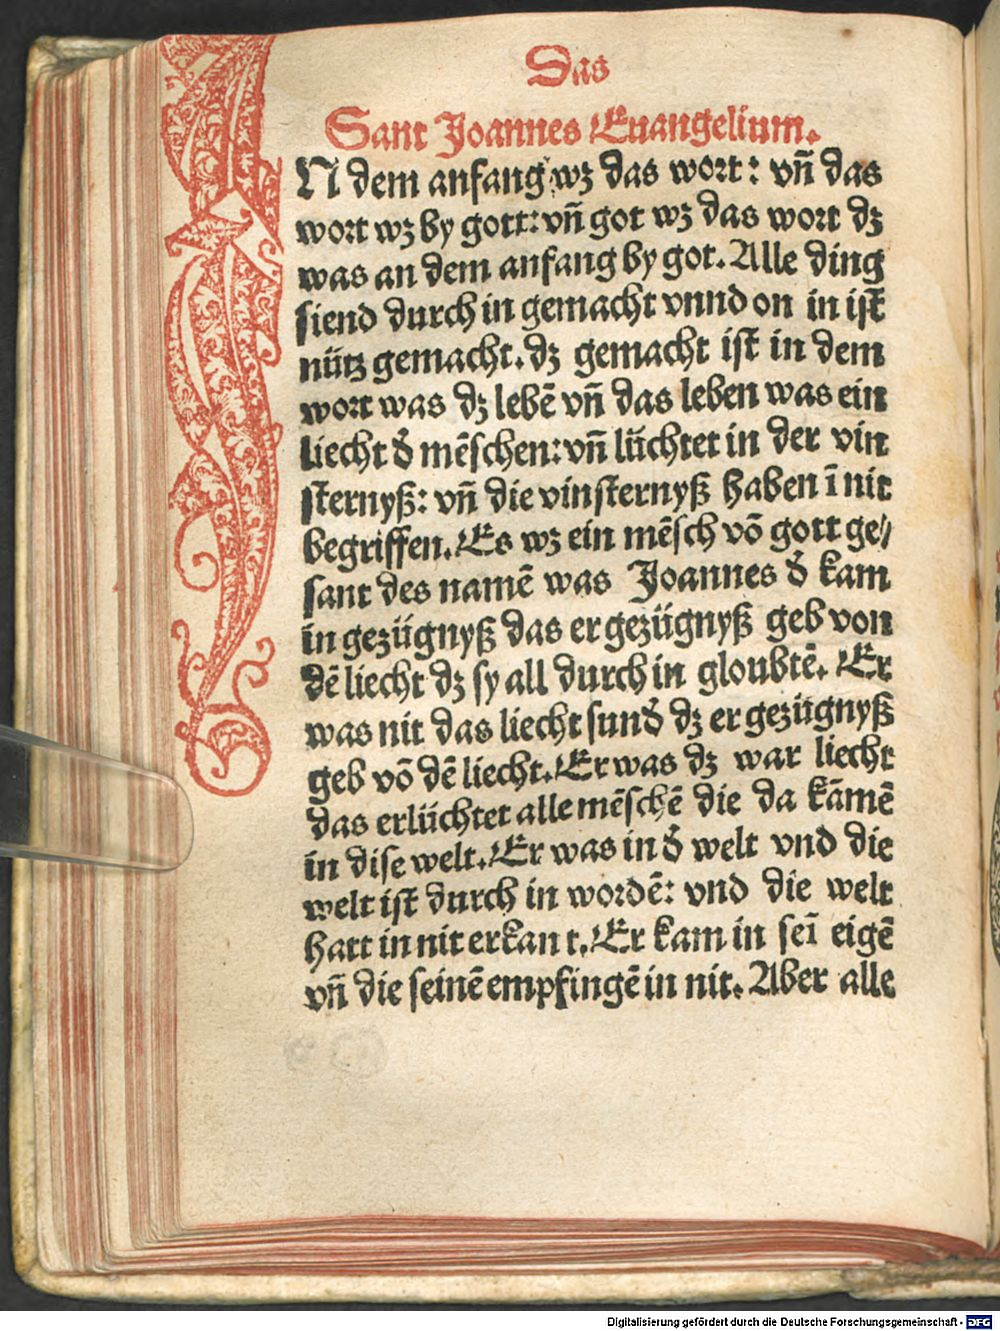 Das
Sant Joannes Euangelium.
N dem anfang wz das wort: vñ das
wort wz by gott: vñ got wz das wort dz
was an dem anfang by got. Alle ding
siend durch in gemacht vnnd on in ist
nütz gemacht. dz gemacht ist in dem
wort was dz lebē vñ das leben was ein
liecht d̕ mēschen: vñ lüchtet in der vin
sternyß: vñ die vinsternyß haben ī nit
begriffen. Es wz ein mēsch vō gott ge/
sant des namē was Joannes d̕ kam
in gezügnyß das er gezügnyß geb von
dē liecht dz sy all durch in gloubtē. Er
was nit das liecht sund̕ dz er gezügnyß
geb vō dē liecht. Er was dz war liecht
das erlüchtet alle mēschē die da kāmē
in dise welt. Er was in d̕ welt vnd die
welt ist durch in wordē: vnd die welt
hatt in nit erkan t. Er kam in seī eigē
vñ die seinē empfingē in nit. Aber alle
Digitalisierung gefördert durch die Deutsche Forschungsgemeinschaft - DFG